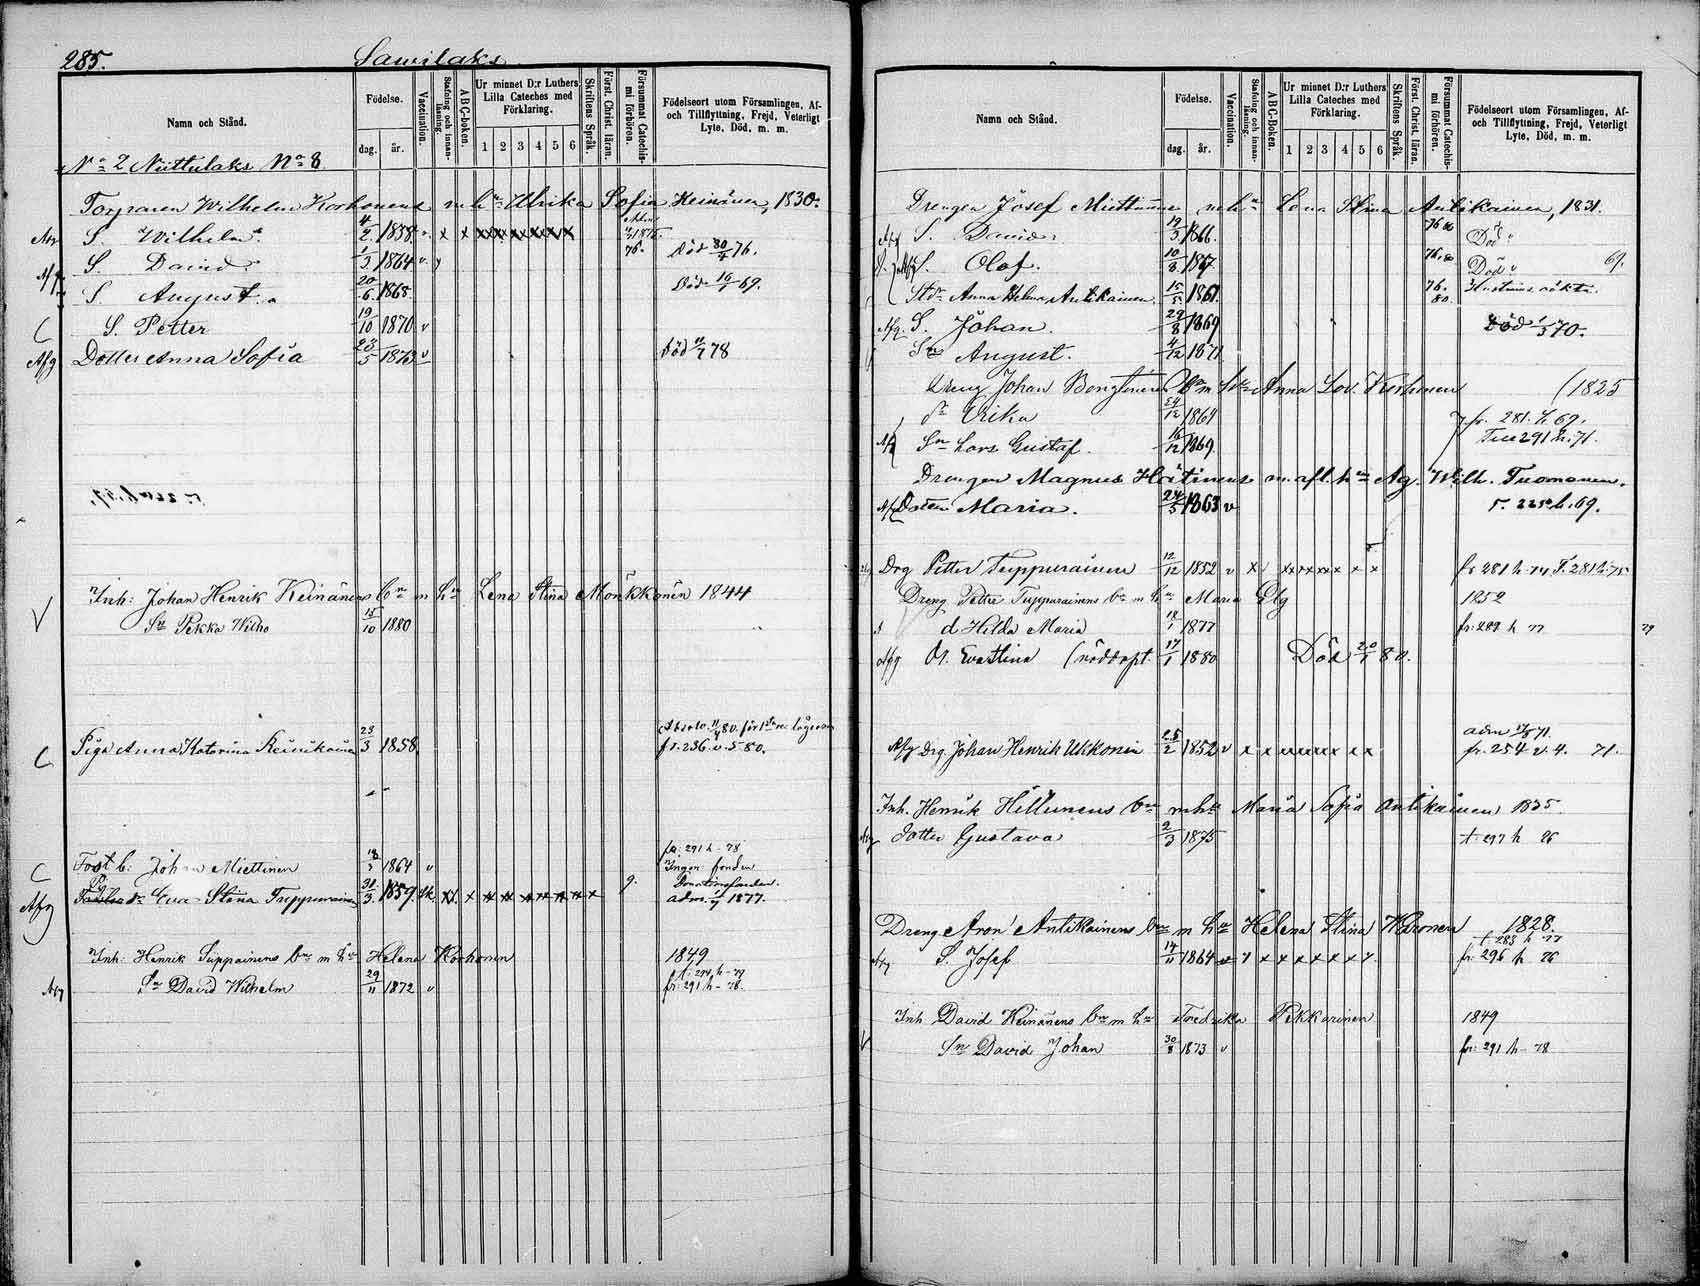 285. Sawilaks
Namn och Stånd.
Födelse.
dag. år.
Vaccination.
Stafning och innanläsning.
ABC-boken.
Ur minnet D:r Luthers Lilla Cateches med Förklaring.
1 2 3 4 5 6
Skriftens Språk.
Först. Christ. läran.
Försummat Catechismi förhören.
Födelseort utom Församlingen, Af- och Tillflyttning, Frejd, Veterligt Lyte, Död, m. m.
No 2 Niittulaks No 8
Torparen Wilhelm Korhonens m hu Ulrika Sofia Heinänen, 1830.
Afg S. Wilhelm 4/2 1858 v x x
S. David 1/3 1864 v 76. Död 30/4 76.
S. August 20/6 1868 Död 16/7 69.
C S. Petter 19/10 1870 v
Afg Dotter Anna Sofia 23/5 1873 v Död 11/7 78
Inh: Johan Henrik Keinänens bne m hu Lena Stina Mönkkönen 1844
V Sn Pekka Wilho 15/10 1880
C Piga Anna Katarina Reinikainen 23/3 1858 fr. 236. v. 5 80.
fr: 291 h - 78
C Fost b: Johan Miettinen 1864 v Ingen fonden
Afg Eva Stina Tuppurainen 31/3 1859. 9. adm. 1/7 1877.
Inh: Henrik Suppainens bne m hu Helena Korhonen 1849
t: 294 h - 79
Afg Sn David Wilhelm 29/11 1872 v fr: 291 h - 78
Namn och Stånd.
Födelse.
dag. år.
Vaccination.
Stafning och innanläsning.
ABC-boken.
Ur minnet D:r Luthers Lilla Cateches med Förklaring.
1 2 3 4 5 6
Skriftens Språk.
Först. Christ. läran.
Försummat Catechismi förhören.
Födelseort utom Församlingen, Af- och Tillflyttning, Frejd, Veterligt Lyte, Död, m. m.
Drengen Josef Miettinens m hu Lena Stina Antikainen, 1831.
Afg S. David 19/3 1866. 76 80 Död
S. Olof. 10/8 1867 76. 80 Död 69.
Std. Anna Helena Antikainen 15/5 1861. 76. 80.
Afg. S. Johan. 29/8 1869 Död 1/3 70.
Sn August. 4/12 1871
Dreng Johan Bengtsonens bn m hu Anna Lov. Korhonen (1825
dr Ulrika 24/12 1861 fr. 281. h 69.
Afg Sn Lars Gustaf 16/12 1869. Till 291 h. 71.
Drengen Magnus Hoitinens m. afl. hu Ag. Wilh. Tuomonen.
Afg Dottern Maria. 24/5 1863 v h. 69.
Drg Petter Tuppurainen 12/12 1852 v x x x x x x x x x fr 281 h. 74 T. 281 h. 75
Dreng Petter Tuppurainens bne m hu Maria Elg 1852
d Hilda Maria 18/1 1877 fr: 289 h 77 79
Afg d. Eva Stina (nöddöpt. 17/1 1880 Död 20/1 80.
adm 71
Afg drg. Johan Henrik Ukkonen 25/2 1852 v x x x x x x x x x fr. 254 v. 4. 71.
Inh. Henrik Hillunens bne m hu Maria Sofia Antikainen 1835
Afg Dotter Gustava 2/3 1875 t. 297 h 76
Dreng Aron Antikainens bne m hu Helena Stina Waronen 1828.
t 283 h 77
Afg S. Josef 14/11 1864 fr: 296 h 76
Inh David Keinänens bne m hu Fredrika Pekkarinen 1849
V Sn David Johan 30/8 1873 v fr: 291 h - 78